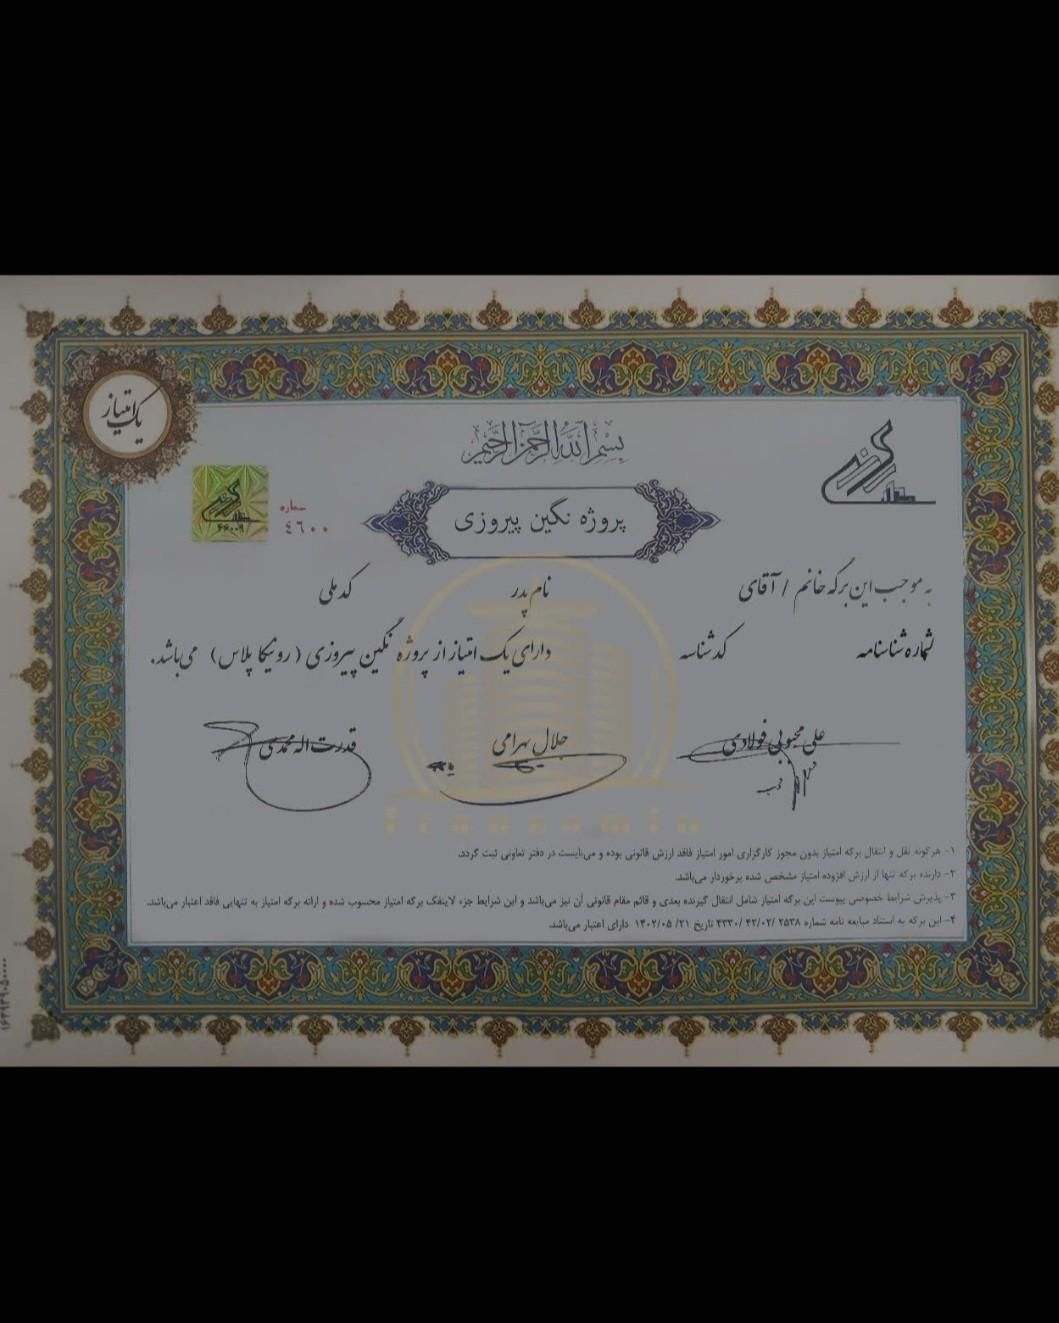 یک امتیاز
بسم الله الرحمن الرحیم
شماره
٤٦٠٠
پروژه نگین پیروزی
به موجب این برگه خانم / آقای نام پدر کد ملی
شماره شناسنامه کد شناسه دارای یک امتیاز از پروژه نگین پیروزی (رونیکا پلاس) می‌باشد.
علی محبوبی فولادی جلال بهرامی قدرت اله محمدی
Iranzamin
۱- هرگونه نقل و انتقال برگه امتیاز بدون مجوز کارگزاری امور امتیاز فاقد ارزش قانونی بوده و می‌بایست در دفتر تعاونی ثبت گردد.
۲- دارنده برگه تنها از ارزش افزوده امتیاز مشخص شده برخوردار می‌باشد.
۳- پذیرش شرایط خصوصی پیوست این برگه امتیاز شامل انتقال گیرنده بعدی و قائم مقام قانونی آن نیز می‌باشد و این شرایط جزء لاینفک برگه امتیاز محسوب شده و ارائه برگه امتیاز به تنهایی فاقد اعتبار می‌باشد.
۴- این برگه به استناد مبایعه نامه شماره ۲۵۳۸ /۴۲/۰۲ /۳۳۳۰ تاریخ ۲۱/ ۰۵/ ۱۴۰۲ دارای اعتبار می‌باشد.